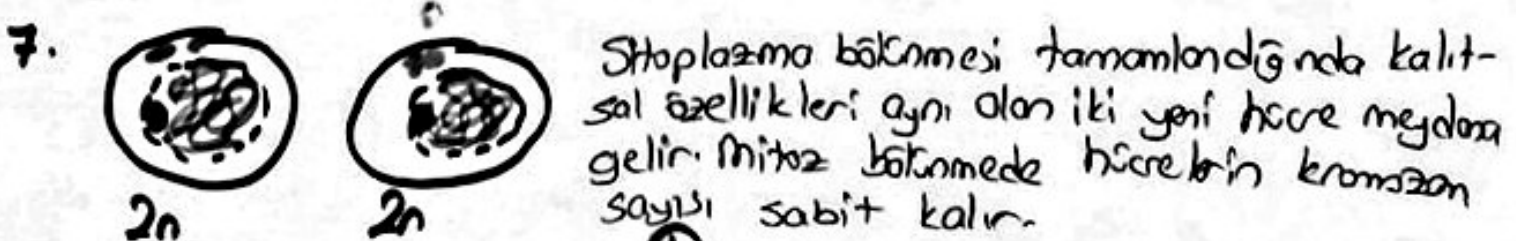 7.
Sitoplazma bölünmesi tamamlandığında kalıt-
sal özellikleri aynı olan iki yeni hücre meydana
gelir. Mitoz bölünmede hücrelerin kromozom
sayısı sabit kalır.
2n 2n